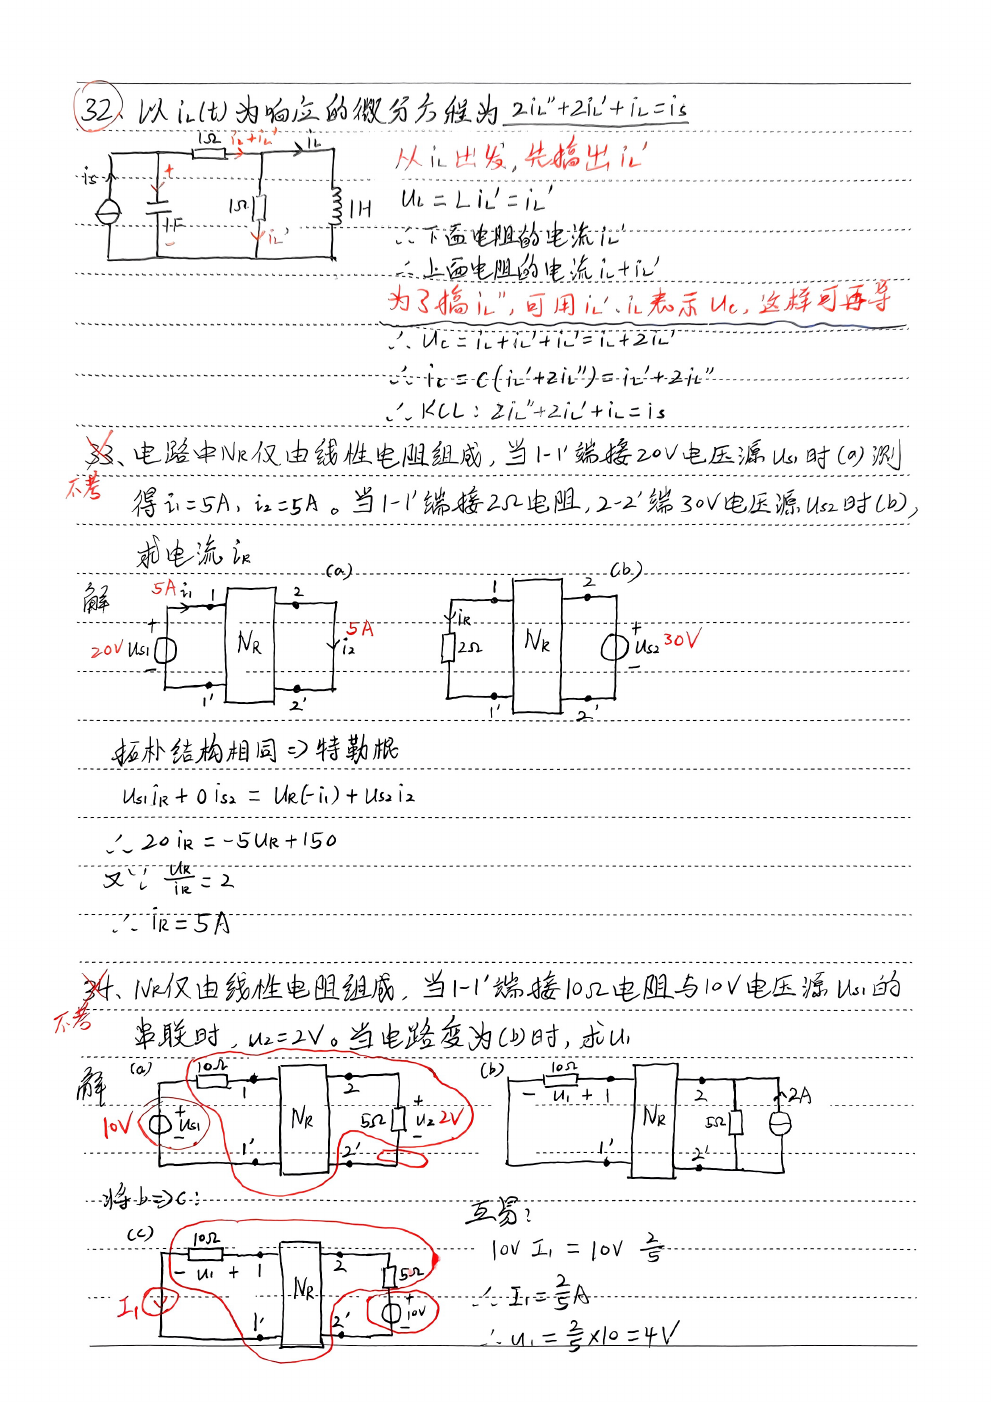 32、以 iL(t) 为响应的微分方程为 2iL''+2iL'+iL=is
1Ω iL+iL' iL
is + 1F − 1Ω iL' 1H
从 iL 出发，先搞出 iL'
UL = L iL' = iL'
∴下面电阻的电流 iL'
∴上面电阻的电流 iL+iL'
为了搞 iL''，可用 iL'、iL 表示 Uc，这样可再导
∴ Uc = iL+iL'+iL' = iL+2iL'
∴ ic = C(iL'+2iL'') = iL'+2iL''
∴ KCL: 2iL''+2iL'+iL=is
33、电路中NR仅由线性电阻组成，当1-1'端接20V电压源Us1时(a)测
不考
得i1=5A、i2=5A。当1-1'端接2Ω电阻，2-2'端30V电压源Us2时(b)，
求电流iR
解 (a) (b)
5A i1 1 2 1 2
20V Us1 + − NR 5A i2 iR 2Ω NR + − Us2 30V
1' 2' 1' 2'
拓朴结构相同 => 特勒根
Us1 iR + 0 is2 = UR(-i1) + Us2 i2
∴ 20 iR = -5UR + 150
又∵ UR/iR = 2
∴ iR = 5A
34、NR仅由线性电阻组成，当1-1'端接10Ω电阻与10V电压源Us1的
不考
串联时，u2=2V。当电路变为(b)时，求u1
解 (a) 10Ω 1 2 (b) 10Ω − u1 + 1 2
10V + − Us1 NR 5Ω + u2 − 2V NR 5Ω 2A
1' 2' 1' 2'
将b=>c: 互易:
(c) 10Ω − u1 + 1 2 5Ω
I1 NR + 10V −
1' 2'
10V I1 = 10V 2/5
∴ I1 = 2/5 A
∴ u1 = 2/5 ×10 = 4V